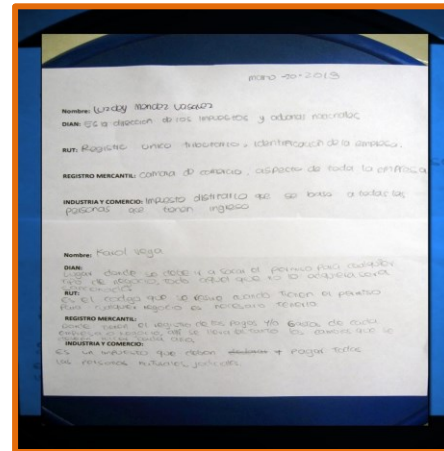 marzo -30-2019
Nombre: Lizdey Mendez Vasquez
DIAN: Es la direccion de los impuestos y aduanas nacionales
RUT: Registro unico tributario, identificacion de la empresa.
REGISTRO MERCANTIL: camara de comercio, aspectos de toda la empresa
INDUSTRIA Y COMERCIO: Impuesto distrital que se basa a todas las
personas que tienen ingreso
Nombre: Karol Vega
DIAN:
Lugar donde se debe ir a sacar el permiso para cualquier
tipo de negocio, todo aquel que no lo adquiera sera
RUT:
es el codigo que tienen el permiso
para cualquier negocio es necesario tenerlo
REGISTRO MERCANTIL:
donde el registro de los pagos y/o de cada
empresa o negocio, los que se
INDUSTRIA Y COMERCIO:
Es un impuesto que deben pagar todas
las personas